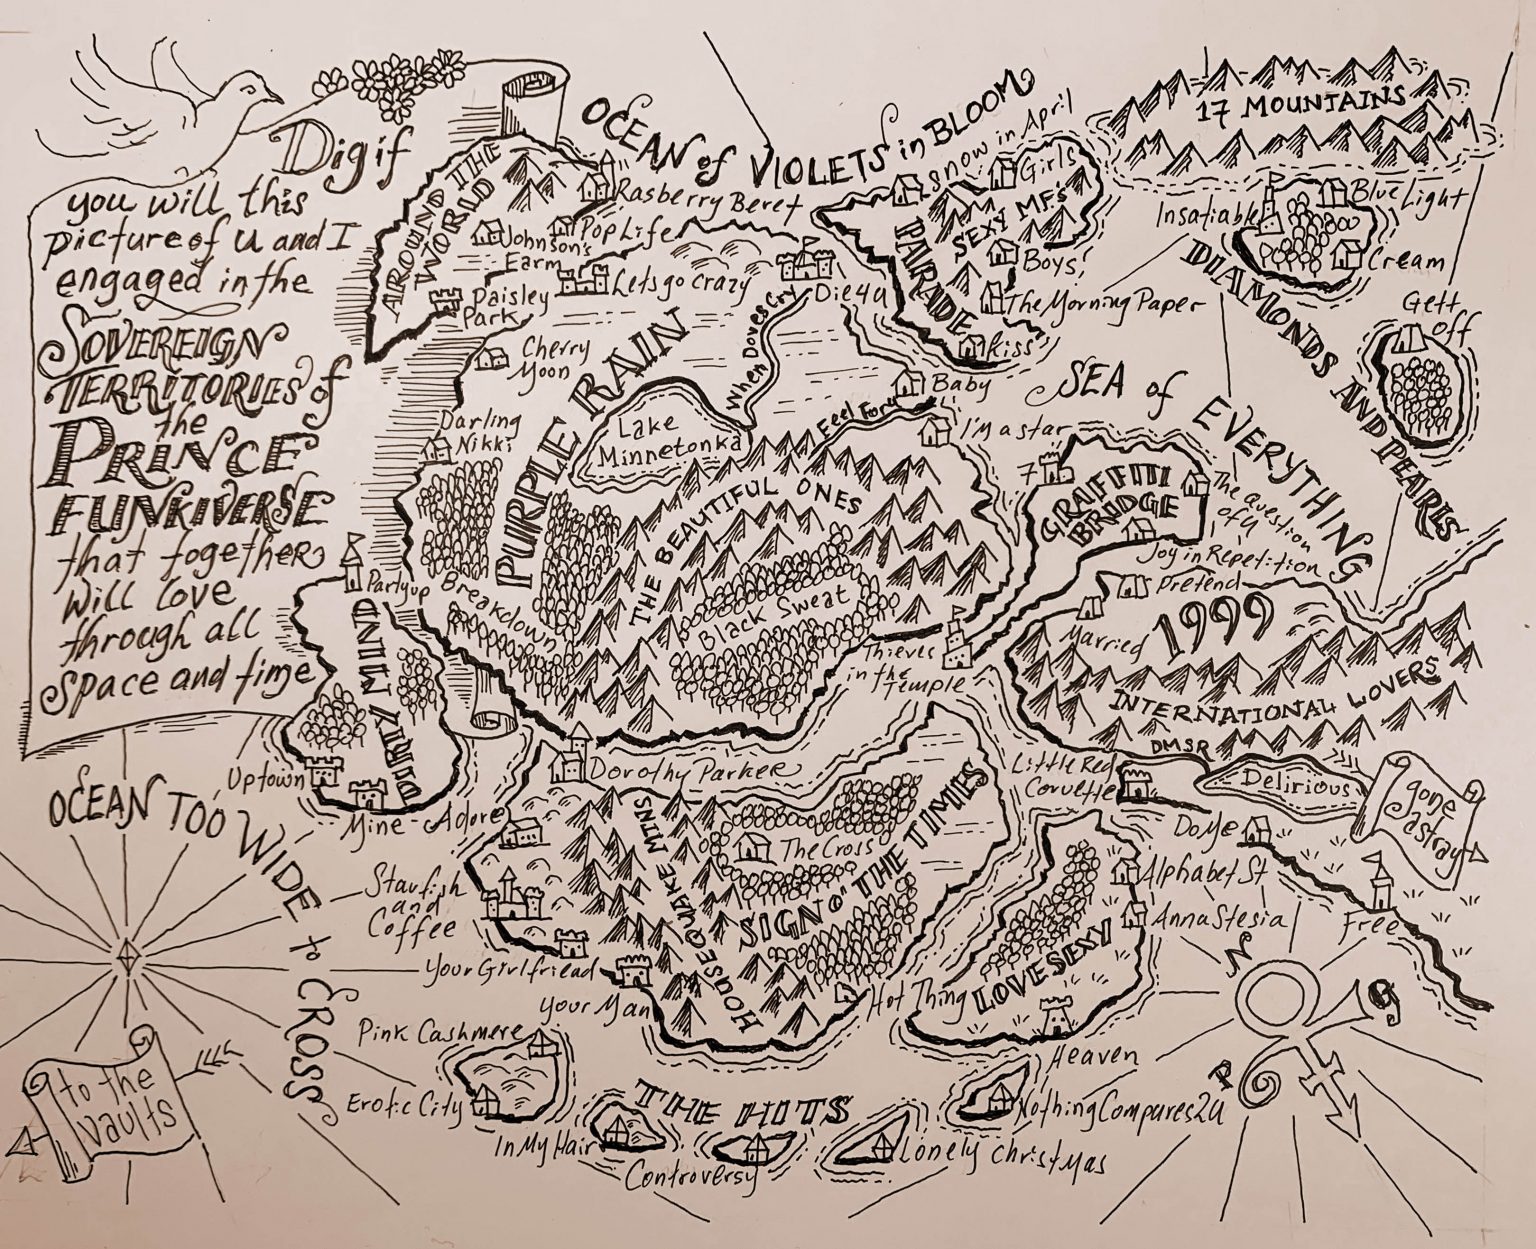 Dig if
you will this
picture of U and I
engaged in the
SOVEREIGN
TERRITORIES of
the
PRINCE
FUNKIVERSE
that together
will love
through all
space and time
OCEAN of VIOLETS in BLOOM
17 MOUNTAINS
AROUND THE
WORLD
Rasberry Beret
Pop Life
Johnson's
Farm
Paisley
Park
Let's go crazy
Cherry
Moon
Darling
Nikki
PURPLE RAIN
Lake
Minnetonka
When Doves Cry
Die 4 U
Feel For U
Baby
I'm a star
THE BEAUTIFUL ONES
Black Sweat
Breakdown
Thieves
in the
Temple
Snow in April
Girls
SEXY MF's
PARADE
Boys!
The Morning Paper
Kiss
Insatiable
Blue Light
Cream
Gett
off
DIAMONDS AND PEARLS
SEA of EVERYTHING
7
GRAFFITI
BRIDGE
The Question
of U
Joy in Repetition
Pretend
Married
1999
INTERNATIONAL LOVERS
DMSR
Delirious
Little Red
Corvette
gone
astray
Do Me
Free
Partyup
DIRTY MIND
Uptown
OCEAN TOO WIDE to CROSS
Dorothy Parker
Mine
Adore
Starfish
and
Coffee
Your Girlfriend
Your Man
HOUSEQUAKE MTNS
The Cross
SIGN O' THE TIMES
Hot Thing
LOVESEXY
Alphabet St
Anna Stesia
Heaven
N
P
Pink Cashmere
Erotic City
THE HITS
In My Hair
Controversy
Lonely Christmas
Nothing Compares 2 U
to the
vaults